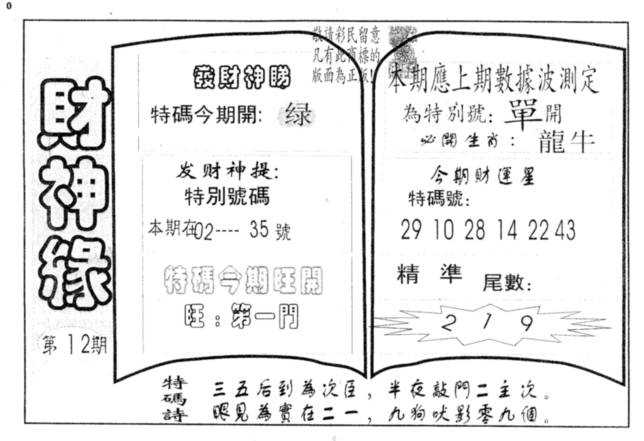 0
敬請彩民留意
凡有此商標的
版面為正版!
財神緣
第12期
發財神賜
特碼今期開: 绿
发财神提:
特别號碼
本期在02---- 35 號
特碼今期旺開
旺: 第一門
本期應上期數據波測定
為特別號: 單開
必開生肖: 龍牛
今期財運星
特碼號:
29 10 28 14 22 43
精 準 尾數:
2 1 9
特碼詩
三五后到為次臣, 半夜敲門二主次。
眼見為實在二一, 九狗吠影零九個。